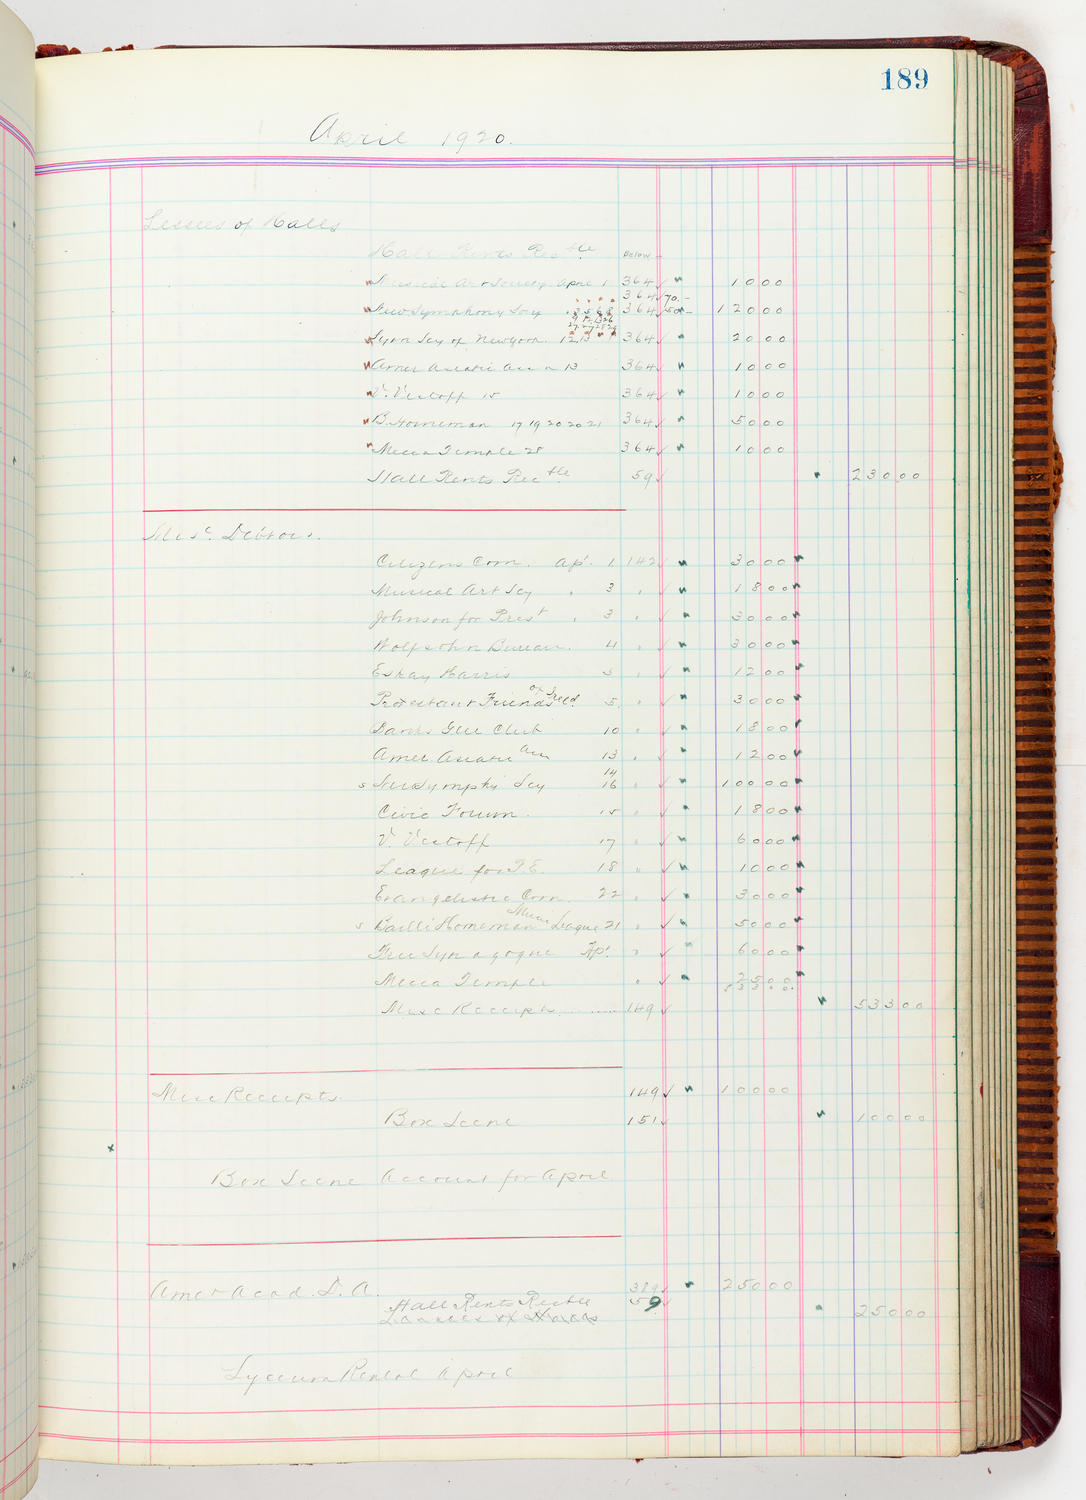 189
April 1920.
Lessees of Halls
Hall Rents Rec'ble below
Musical Art Society April 1 364 ✓ " 10 00
364 ✓ 70.-
New Symphony Socy 364 ✓ 50- 120 00
Symn Socy of New York. 12 13 364 ✓ " 20 00
Amer Asiatic Assn 13 364 ✓ " 10 00
V. Vestoff 15 364 ✓ " 10 00
B. Horneman 17 19 20 20 21 364 ✓ " 50 00
Mecca Temple 25 364 ✓ " 10 00
Hall Rents Rec'ble 59 ✓ " 230 00
Misc. Debtors.
Citizens Com. Ap'. 1 142 ✓ " 30 00
Musical Art Scy " 3 " ✓ " 18 00
Johnson for Prest " 3 " ✓ " 30 00
Wolfsohn Bureau. 4 " ✓ " 30 00
Eskay Harris 5 " ✓ " 12 00
Protestant Friends of Ireld. 5 " ✓ " 30 00
Banks Glee Club 10 " ✓ " 18 00
Amer. Asiatic Assn 13 " ✓ " 12 00
14
s New Symphy Scy 16 " ✓ " 100 00
Civic Forum. 15 " ✓ " 18 00
V. Vestoff 17 " ✓ " 60 00
League for P.E. 18 " ✓ " 10 00
Evangelistic Com. 22 " ✓ " 30 00
s Bailli Horneman Music League 21 " ✓ " 50 00
Free Synagogue Ap'. " ✓ " 60 00
Mecca Temple " ✓ " 25 00
533 00
Misc Receipts 149 ✓ " 533 00
Misc Receipts. 149 ✓ " 100 00
Box Scene 151 ✓ " 100 00
x
Box Scene Account for April
Amer Acad. D. A. 389 ✓ " 250 00
Hall Rents Rec'ble 59 ✓
Lessees of Halls " 250 00
Lyceum Rental April